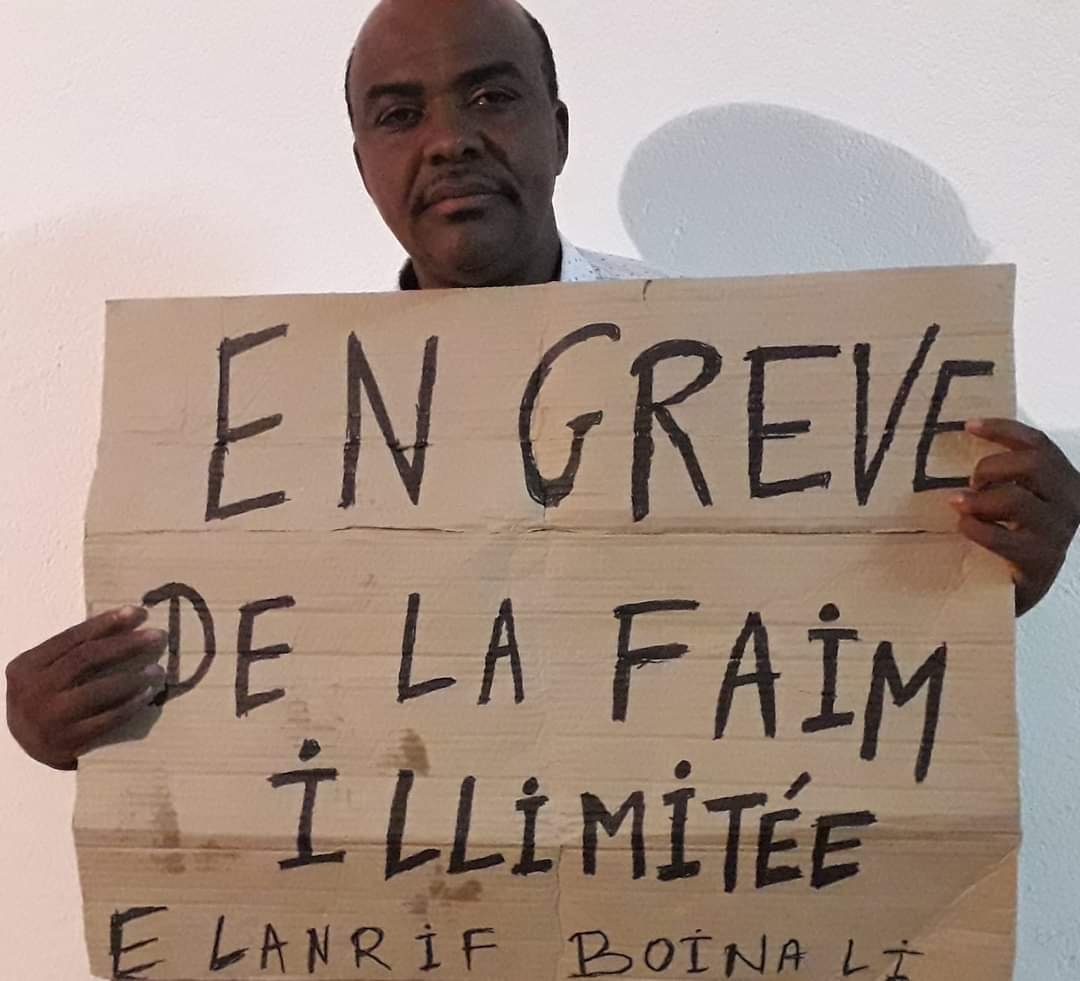 EN GREVE
DE LA FAİM
İLLİMİTÉE
ELANRİF BOİNALİ